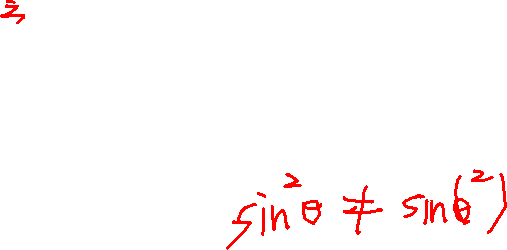 sin²θ ≠ sin(θ²)